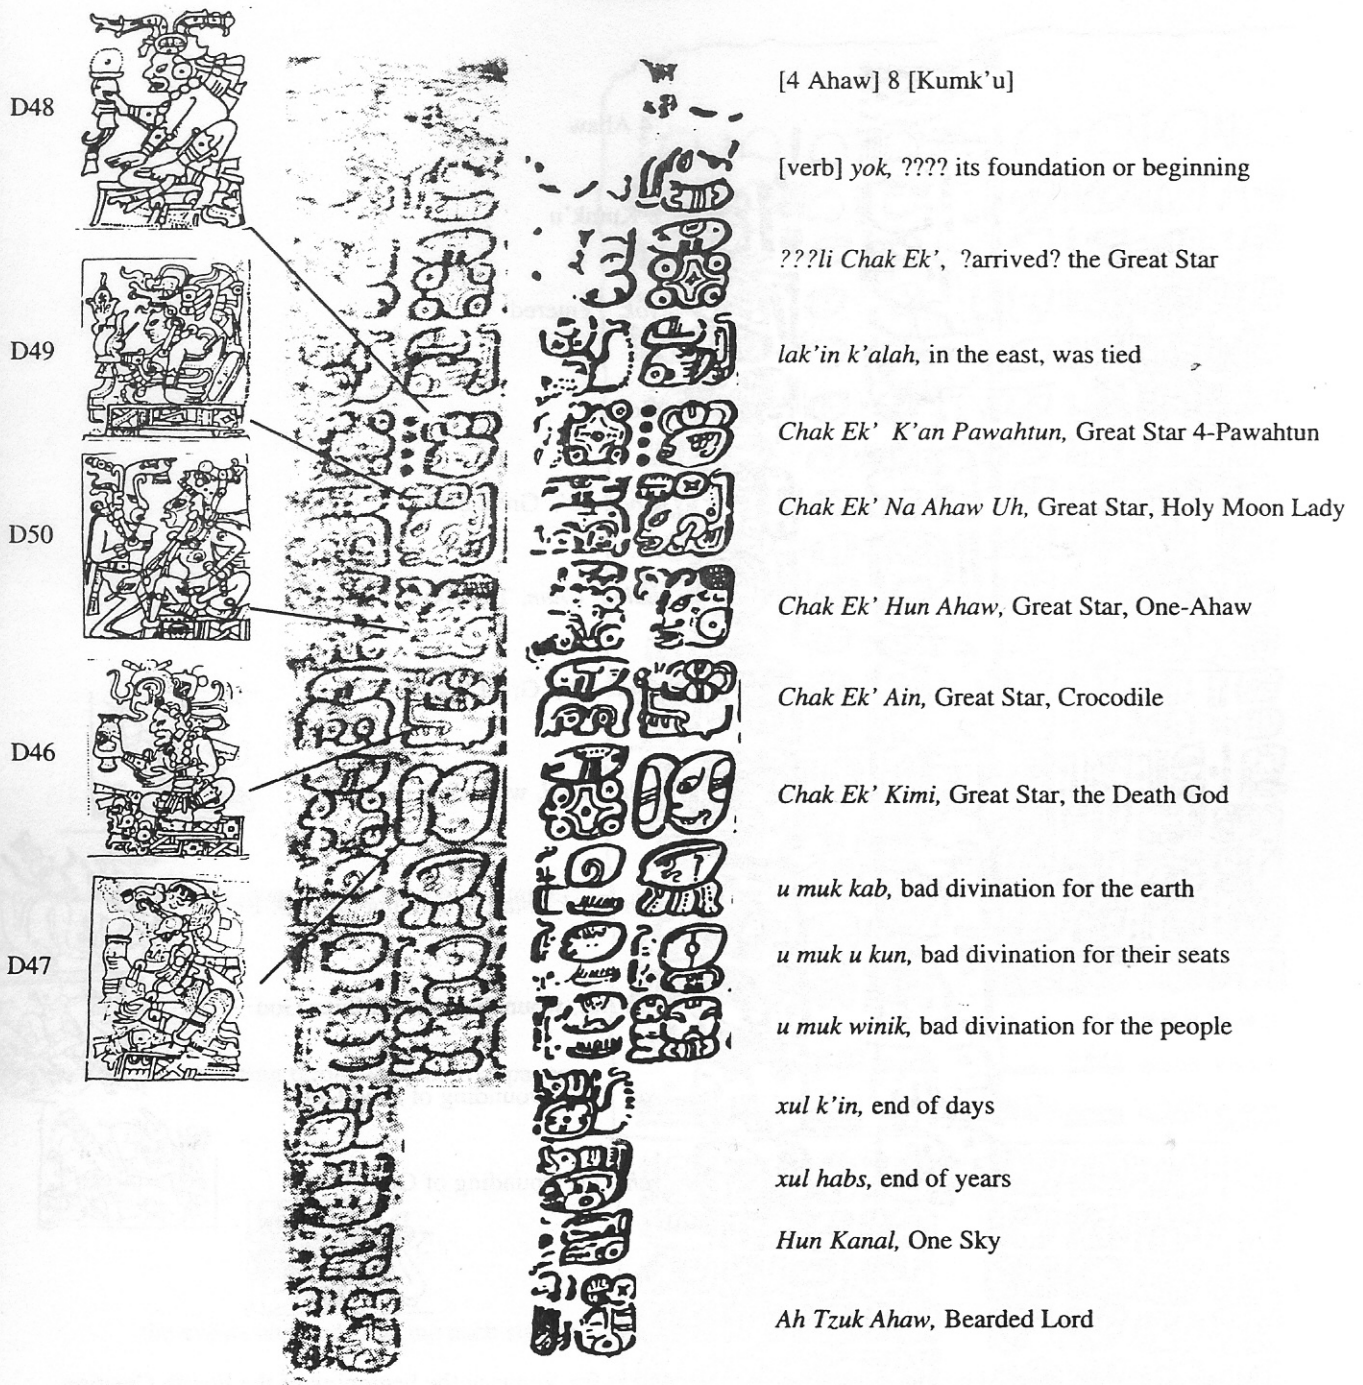 [4 Ahaw] 8 [Kumk'u]
D48
[verb] yok, ???? its foundation or beginning
???li Chak Ek', ?arrived? the Great Star
D49
lak'in k'alah, in the east, was tied
Chak Ek' K'an Pawahtun, Great Star 4-Pawahtun
Chak Ek' Na Ahaw Uh, Great Star, Holy Moon Lady
D50
Chak Ek' Hun Ahaw, Great Star, One-Ahaw
Chak Ek' Ain, Great Star, Crocodile
D46
Chak Ek' Kimi, Great Star, the Death God
u muk kab, bad divination for the earth
u muk u kun, bad divination for their seats
D47
u muk winik, bad divination for the people
xul k'in, end of days
xul habs, end of years
Hun Kanal, One Sky
Ah Tzuk Ahaw, Bearded Lord